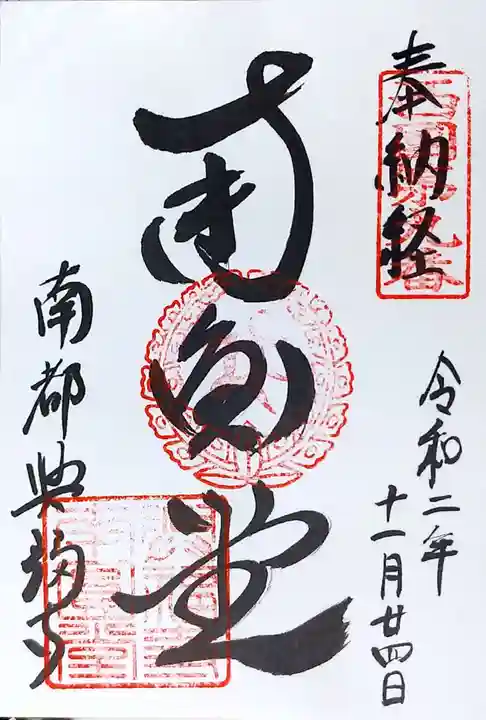 奉納経
西国第九番
令和二年
十一月廿四日
南円堂
南都興福寺